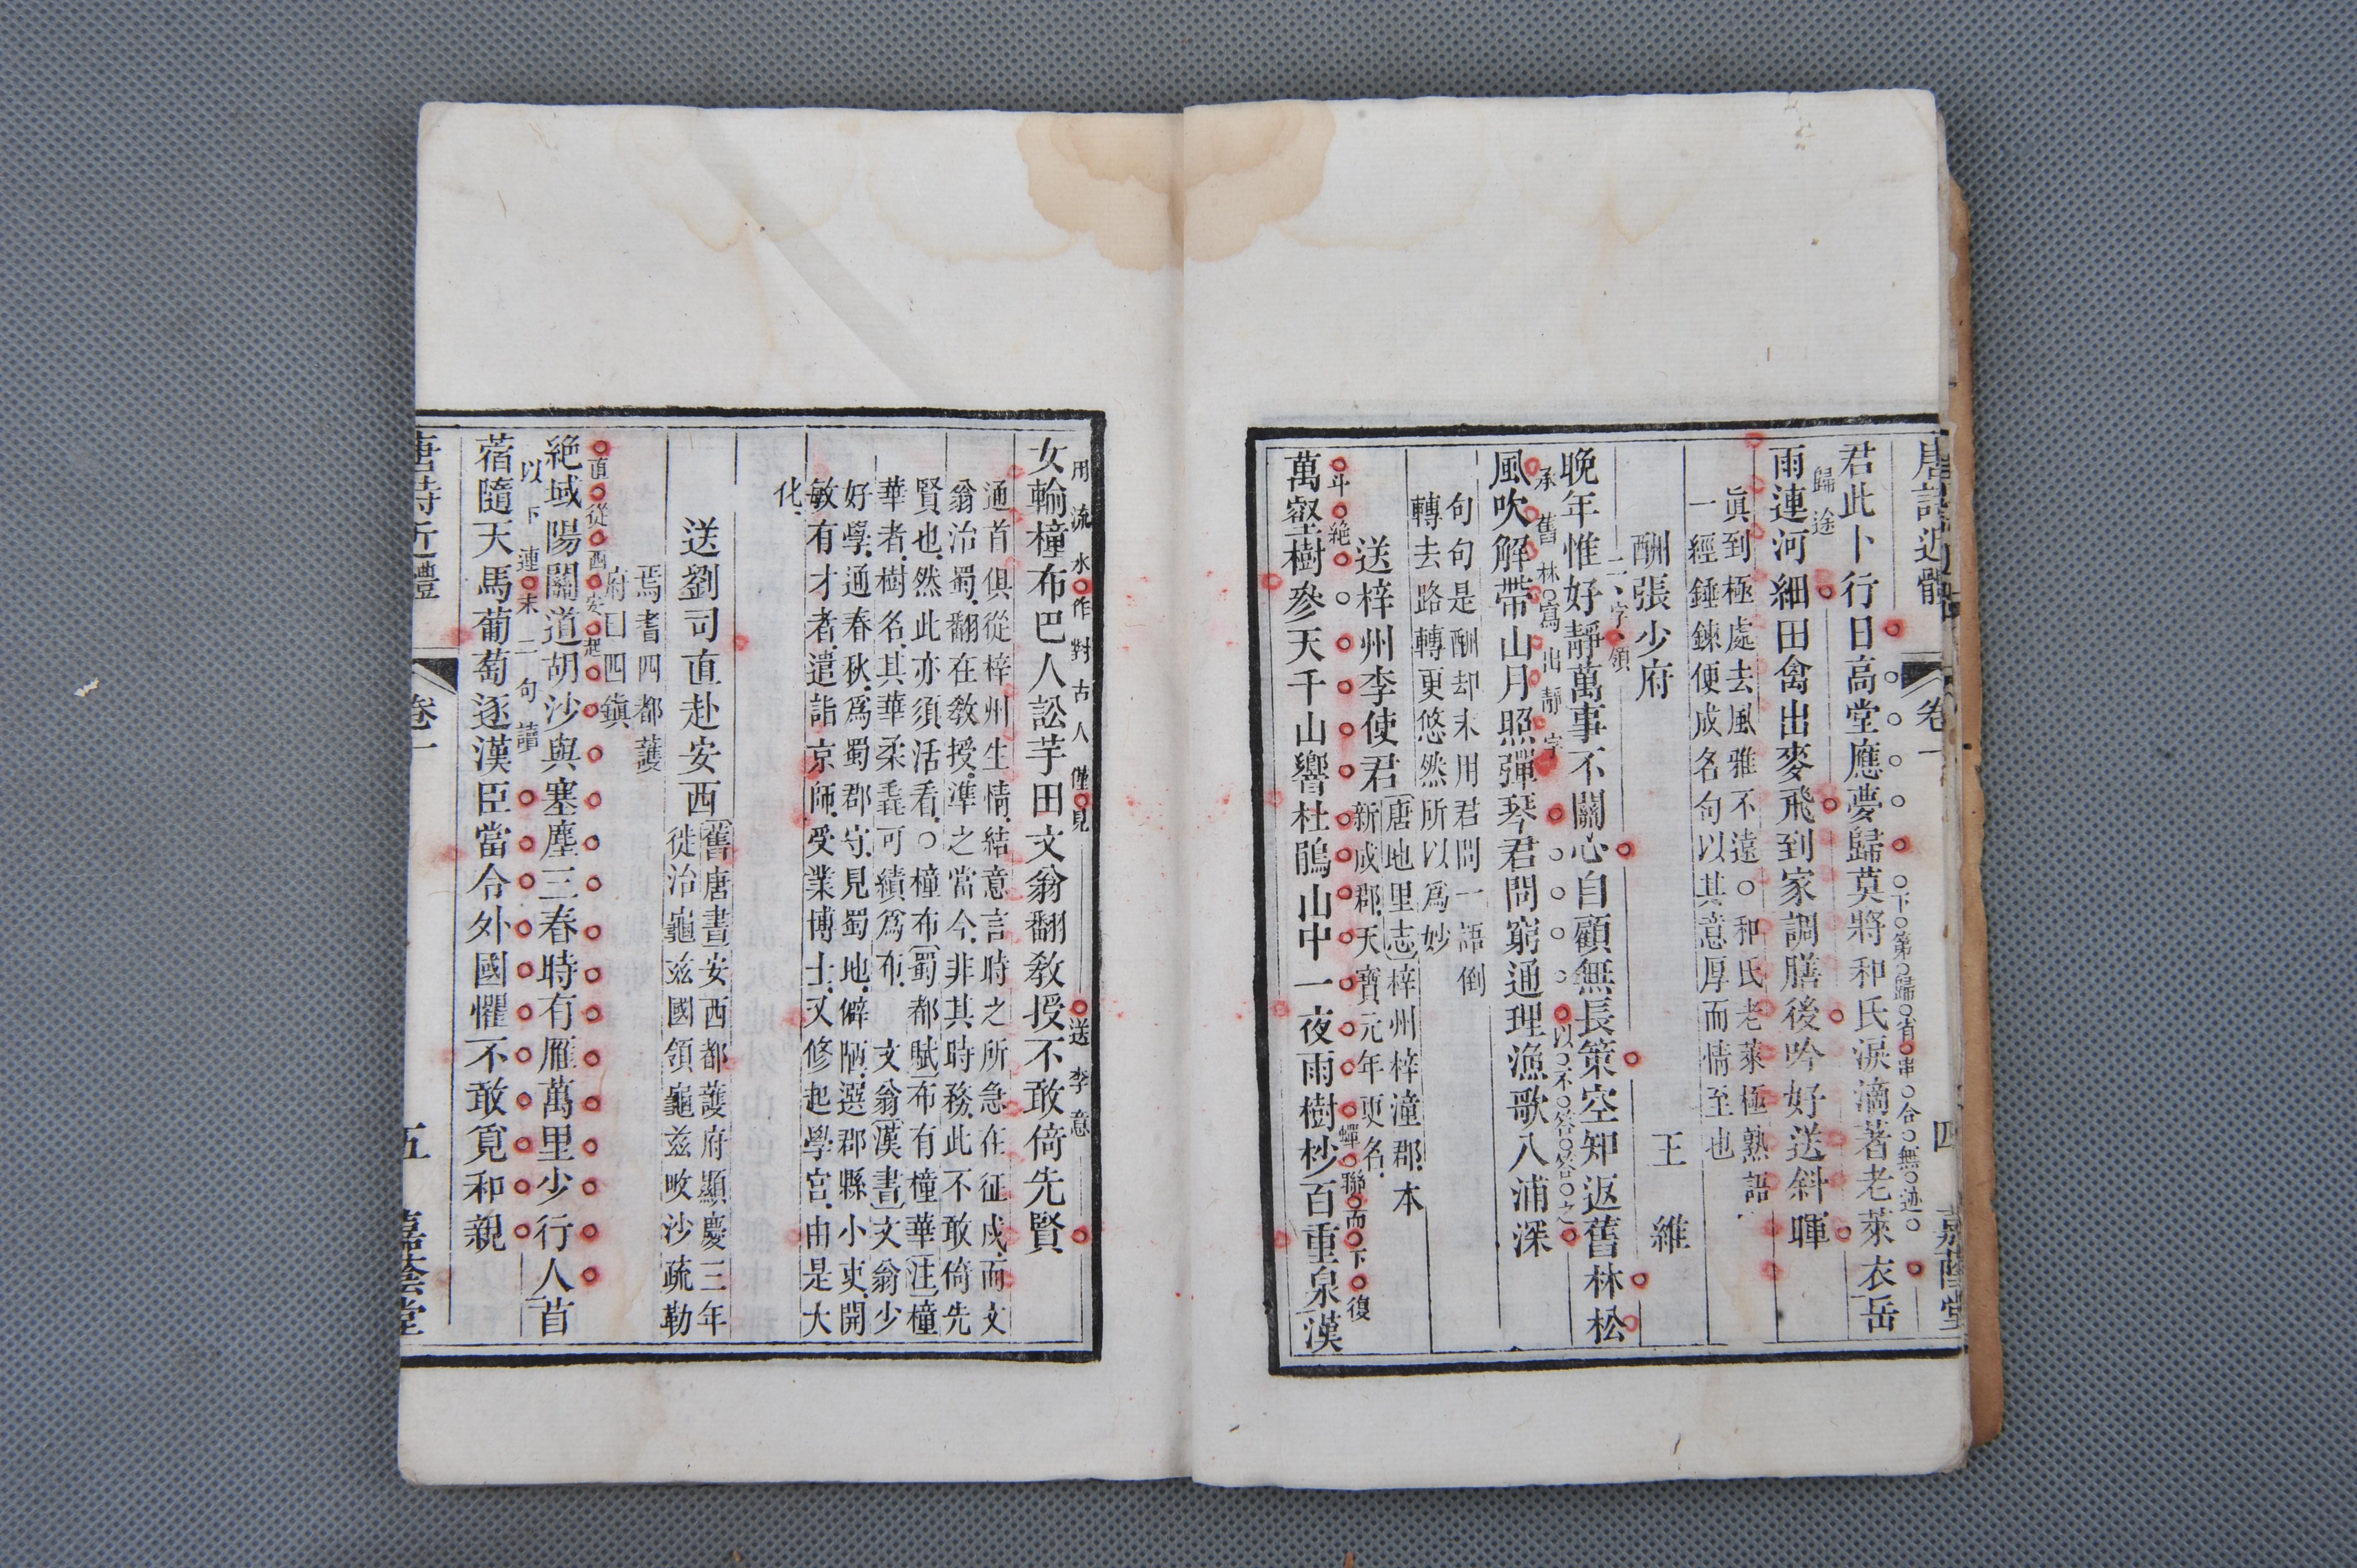 唐詩近體
卷一
四
嘉蔭堂
歸○省○串○合○無○迹○
君此卜行日高堂應夢歸莫將和氏淚滴著老萊衣岳
歸途
雨連河細田禽出麥飛到家調膳後吟好送斜暉
眞到極處去風雅不遠○和氏老萊極熟語
一經錘鍊便成名句以其意厚而情至也
酬張少府
王維
二字領
晚年惟好靜萬事不關心自顧無長策空知返舊林松
承舊林○寫出靜字
以○不○答○答○之
風吹解帶山月照彈琴君問窮通理漁歌入浦深
句句是酬却未用君問一語倒
轉去路轉更悠然所以爲妙
送梓州李使君
唐地里志梓州梓潼郡本
新成郡天寶元年更名
斗絕
蟬聯而下復
萬壑樹參天千山響杜鵑山中一夜雨樹杪百重泉漢
用流水作對古人僅見
送李意
女輸橦布巴人訟芋田文翁翻教授不敢倚先賢
通首俱從梓州生情結意言時之所急在征戍而文
翁治蜀翻在敎授準之當今非其時務此不敢倚先
賢也然此亦須活看○橦布蜀都賦布有橦華注橦
華者樹名其華柔毳可績爲布 文翁漢書文翁少
好學通春秋爲蜀郡守見蜀地僻陋選郡縣小吏開
敏有才者遣詣京師受業博士又修起學宫由是大
化
送劉司直赴安西
舊唐書安西都護府顯慶三年
徙治龜兹國領龜兹畋沙疏勒
焉耆四都護
府曰四鎭
直從西安起
絶域陽關道胡沙與塞塵三春時有雁萬里少行人首
以下連末二句讀
蓿隨天馬葡萄逐漢臣當令外國懼不敢覓和親
唐詩近體
卷一
五
嘉蔭堂